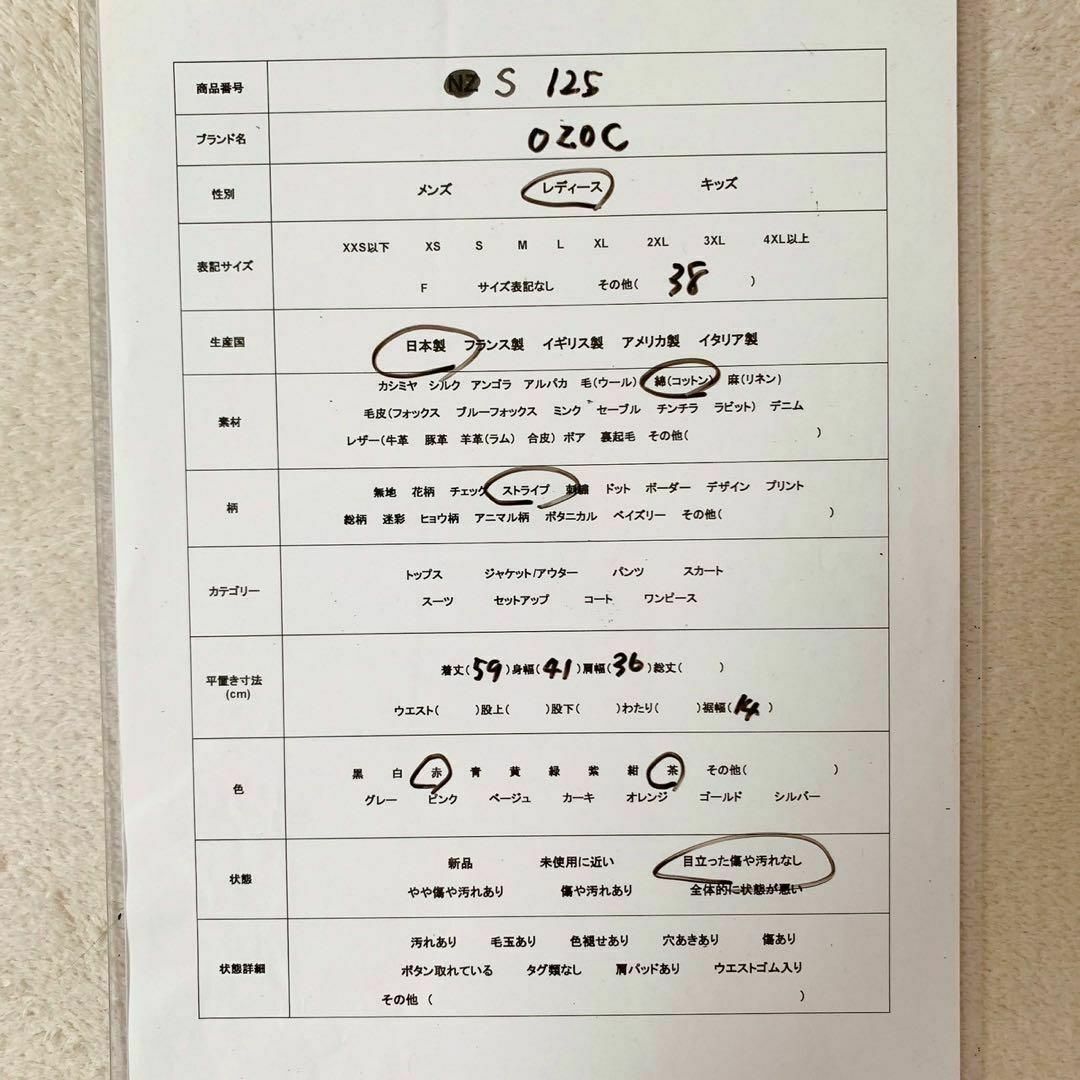 商品番号 NZ S 125
ブランド名 OZOC
性別 メンズ レディース キッズ
表記サイズ
XXS以下 XS S M L XL 2XL 3XL 4XL以上
F サイズ表記なし その他( 38 )
生産国 日本製 フランス製 イギリス製 アメリカ製 イタリア製
素材
カシミヤ シルク アンゴラ アルパカ 毛(ウール) 綿(コットン) 麻(リネン)
毛皮(フォックス ブルーフォックス ミンク セーブル チンチラ ラビット) デニム
レザー(牛革 豚革 羊革(ラム) 合皮) ボア 裏起毛 その他( )
柄
無地 花柄 チェック ストライプ 刺繍 ドット ボーダー デザイン プリント
総柄 迷彩 ヒョウ柄 アニマル柄 ボタニカル ペイズリー その他( )
カテゴリー
トップス ジャケット/アウター パンツ スカート
スーツ セットアップ コート ワンピース
平置き寸法
(cm)
着丈(59)身幅(41)肩幅(36)総丈( )
ウエスト( )股上( )股下( )わたり( )裾幅(14)
色
黒 白 赤 青 黄 緑 紫 紺 茶 その他( )
グレー ピンク ベージュ カーキ オレンジ ゴールド シルバー
状態
新品 未使用に近い 目立った傷や汚れなし
やや傷や汚れあり 傷や汚れあり 全体的に状態が悪い
状態詳細
汚れあり 毛玉あり 色褪せあり 穴あきあり 傷あり
ボタン取れている タグ類なし 肩パッドあり ウエストゴム入り
その他 ( )